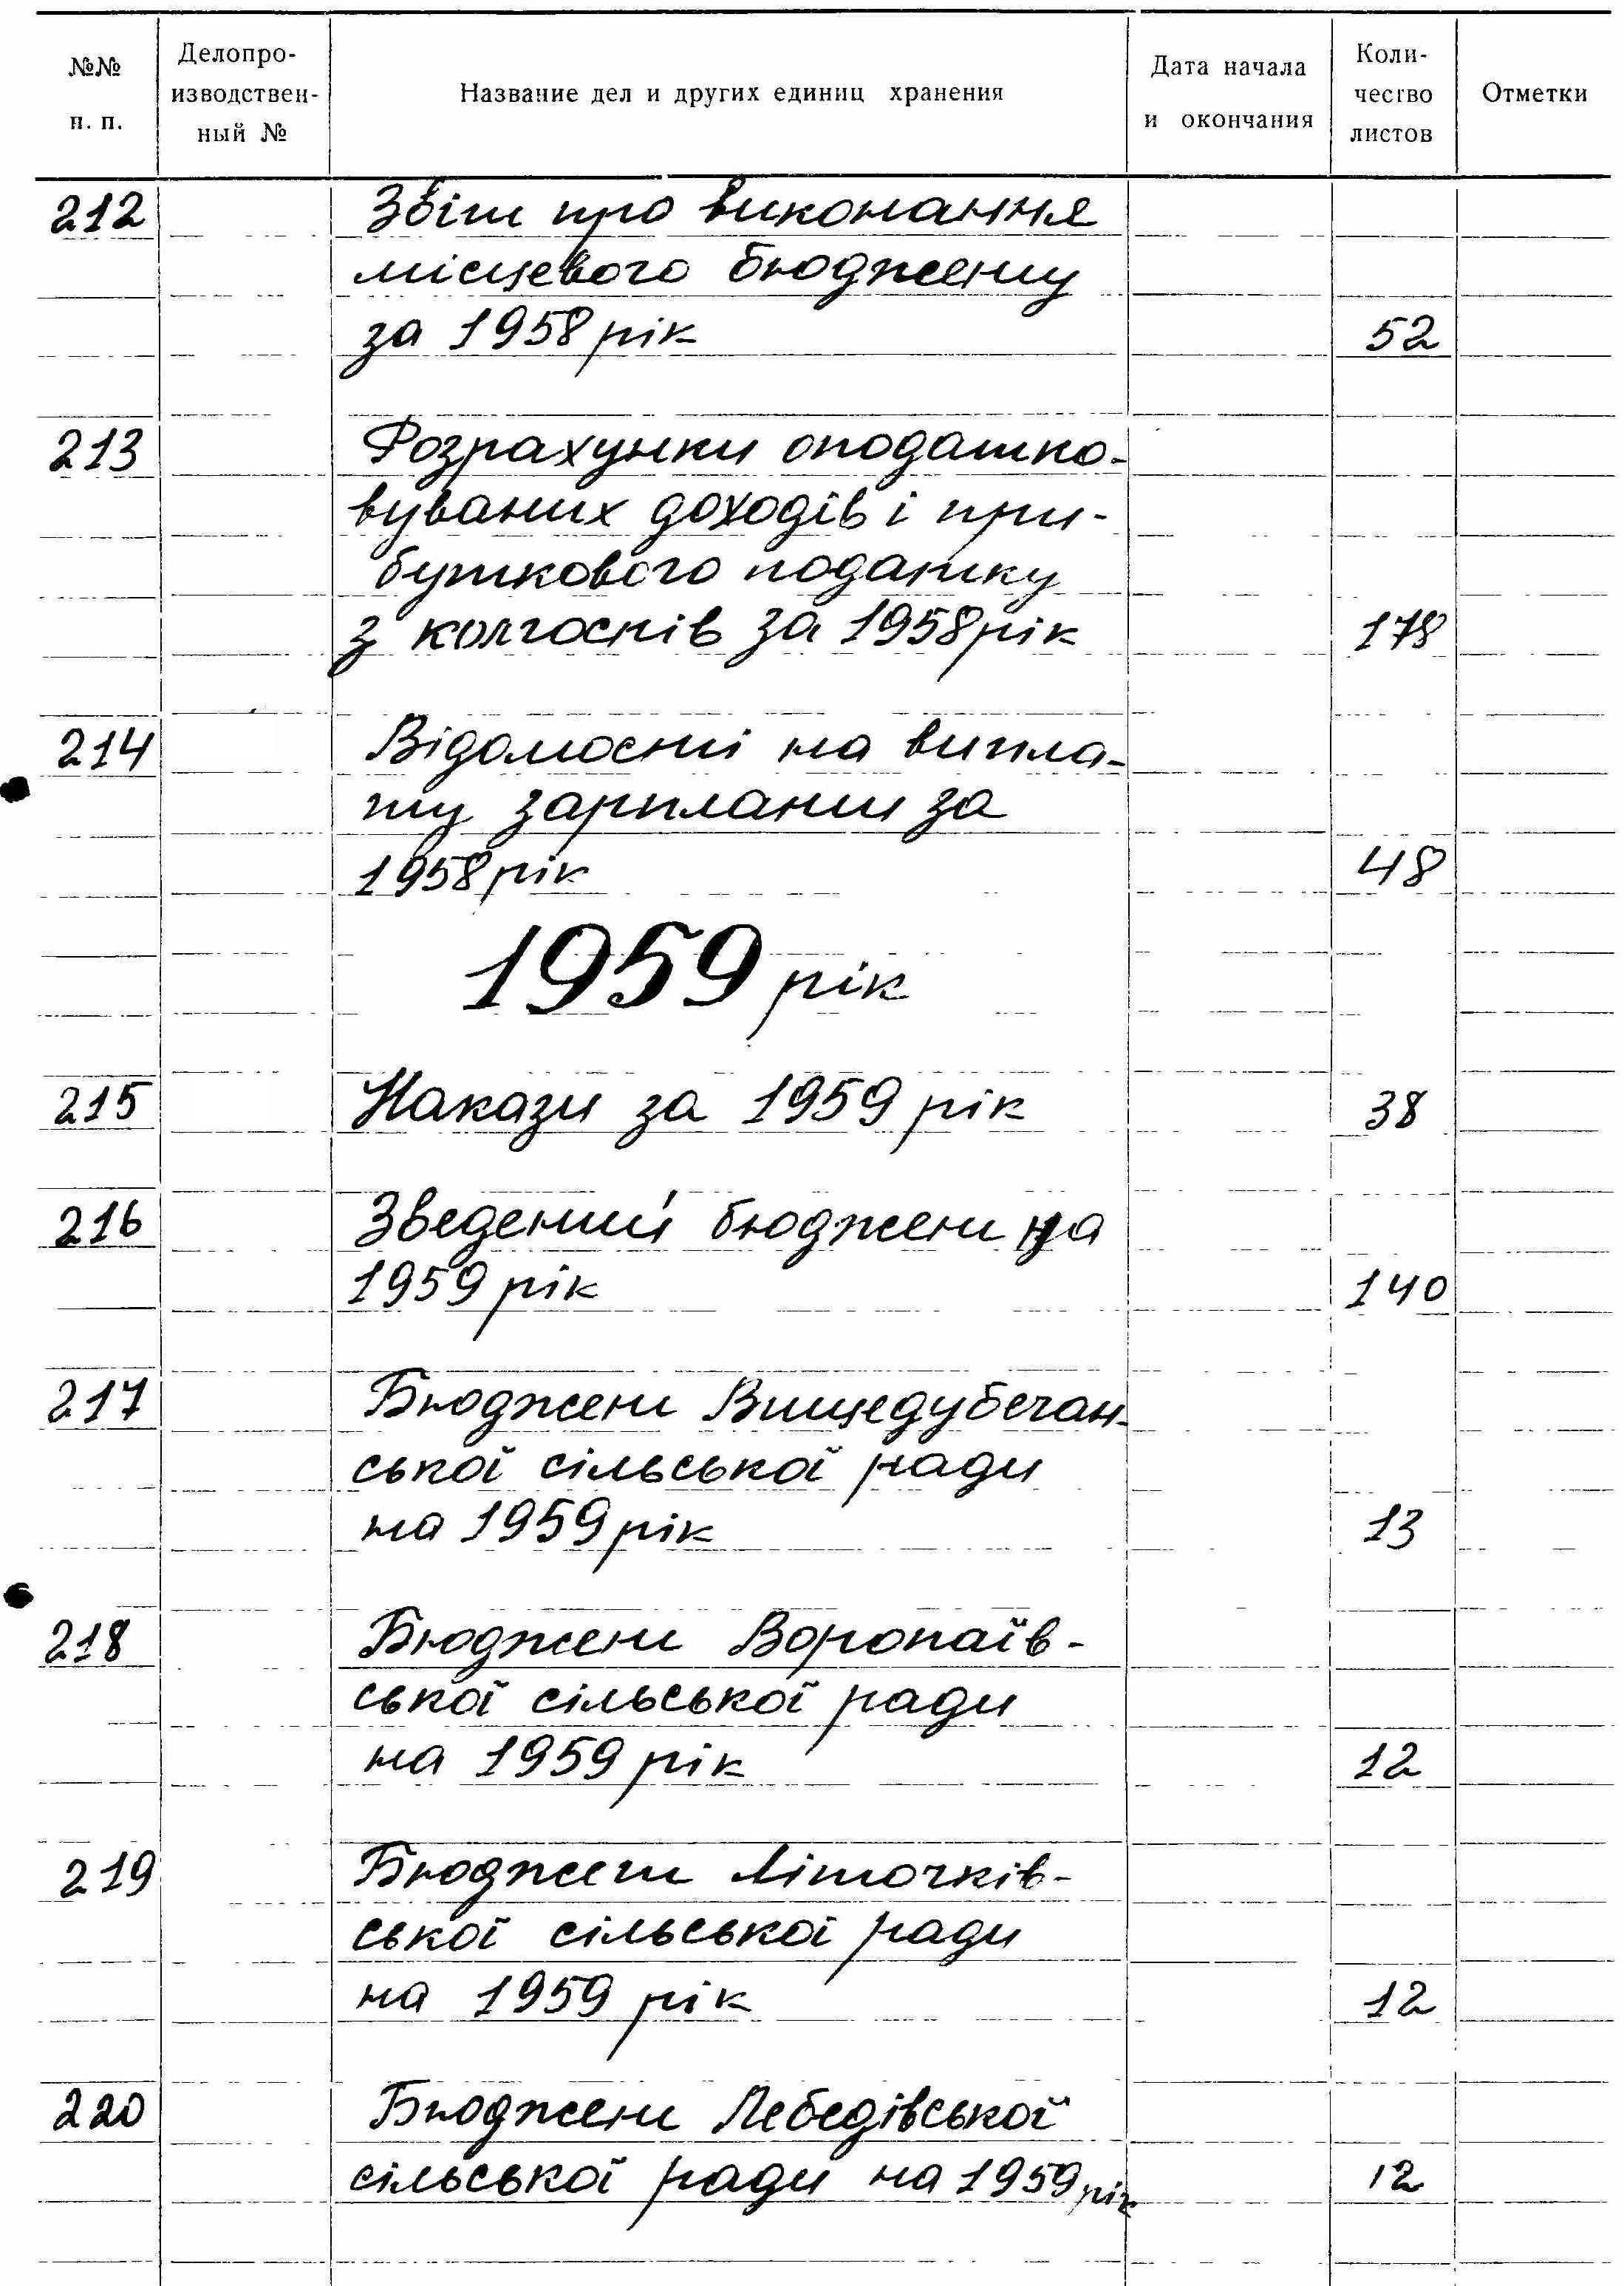 №№ п. п.
Делопро-
изводствен-
ный №
Название дел и других единиц хранения
Дата начала
и окончания
Коли-
чество
листов
Отметки
212 Звіт про виконання
місцевого бюджету
за 1958 рік 52
213 Розрахунки оподатко-
вуваних доходів і при-
буткового податку
з колгоспів за 1958 рік 178
214 Відомості на випла-
ту зарплати за
1958 рік 48
1959 рік
215 Накази за 1959 рік 38
216 Зведений бюджет на
1959 рік 140
217 Бюджет Вищедубечан-
ської сільської ради
на 1959 рік 13
218 Бюджет Воропаїв-
ської сільської ради
на 1959 рік 12
219 Бюджет Літочків-
ської сільської ради
на 1959 рік 12
220 Бюджет Лебедівської
сільської ради на 1959 рік 12